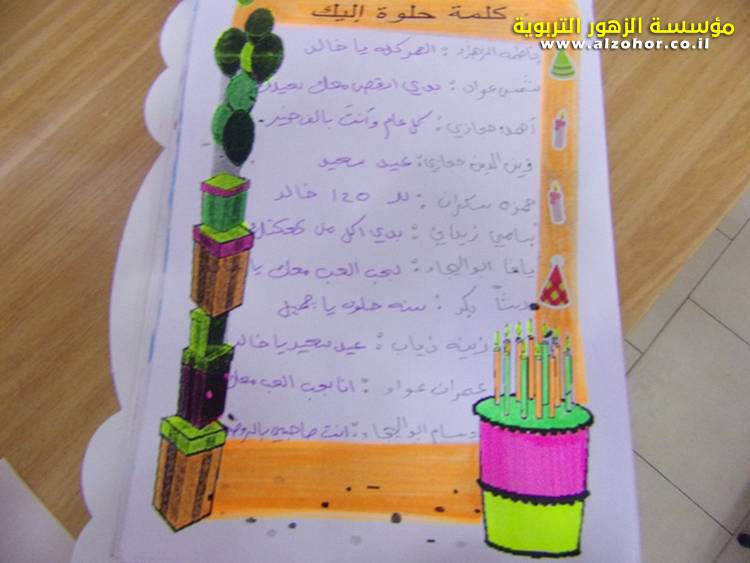 مؤسسة الزهور التربوية
www.alzohor.co.il
كلمة حلوة إليك
فاطمه الزهراء : يا خالد
شمس عواد : بدي ارقص معك
احمد حجازي : كل عام وأنت بالف خير
حجازي : عيد سعيد
حمزه سكران : للـ 120 خالد
: بدي اكل من كعكتك
يافا ابو الهيجاء : بحب العب معك يا
بكر : سنه حلوه يا جميل
زينه ذياب : عيد سعيد يا خالد
عمران عواد : انا بحب العب معك
وسام ابو الهيجاء : انت صاحبي بالروضه